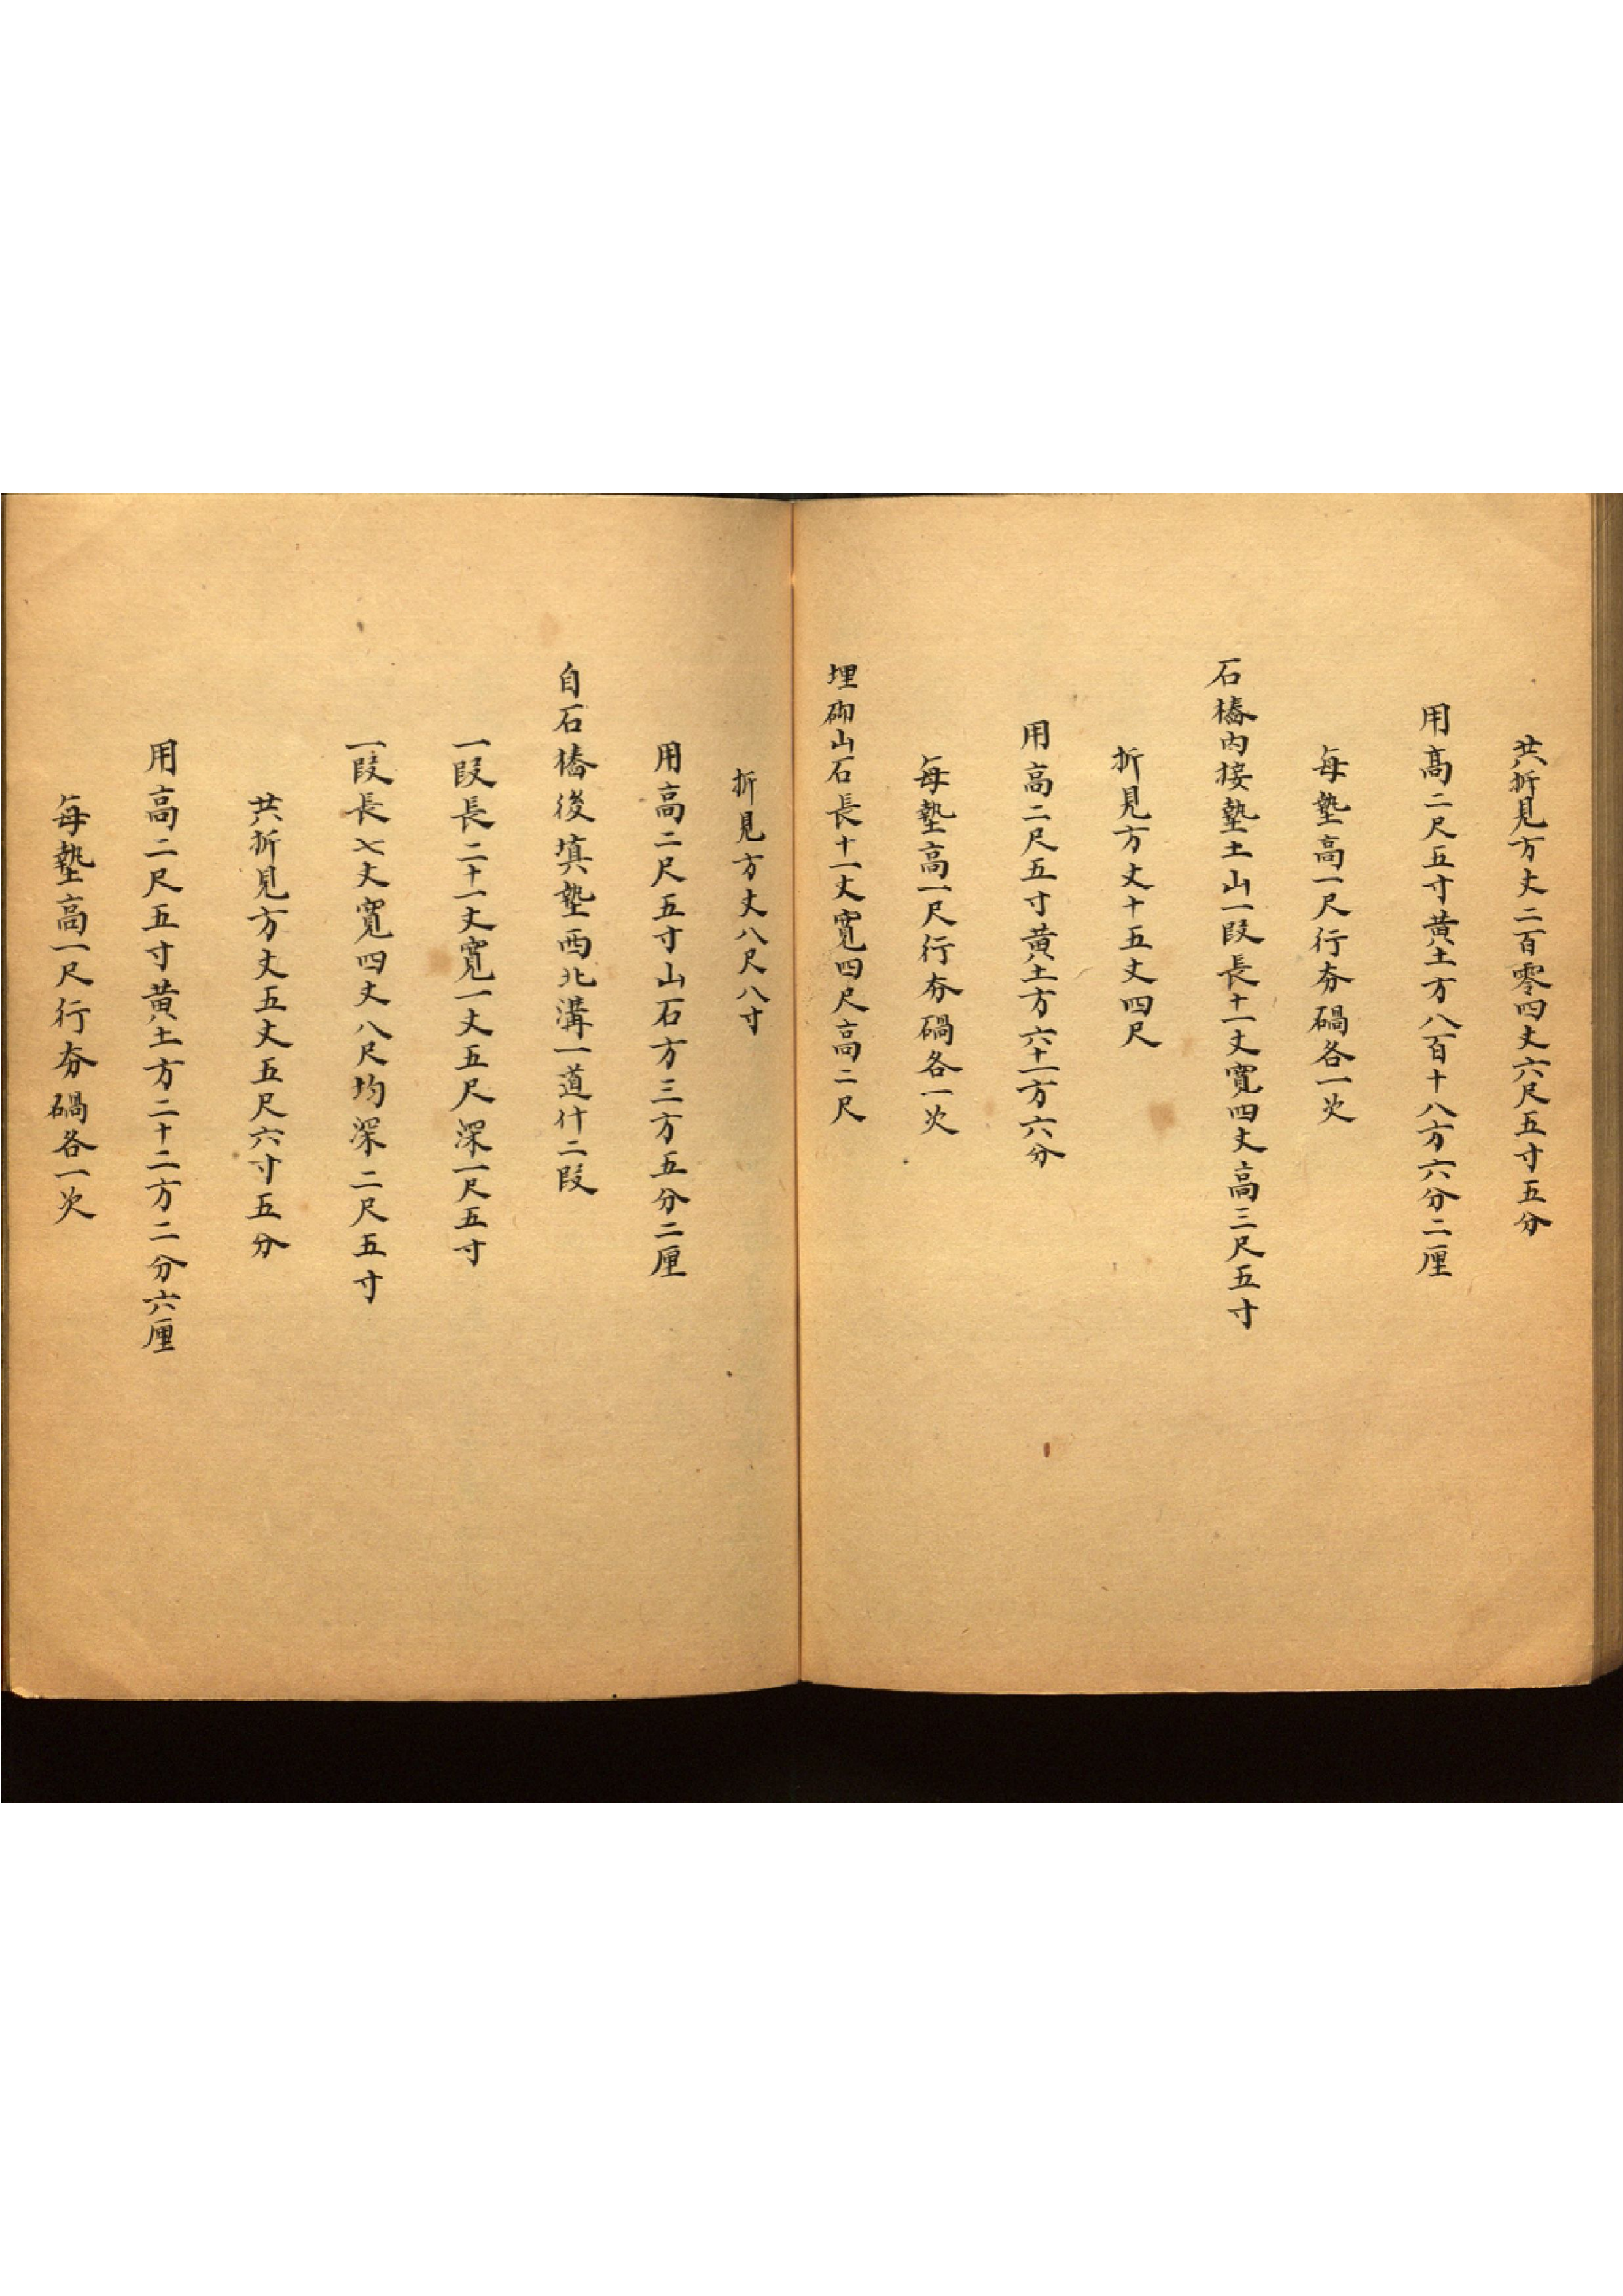 共折見方丈二百零四丈六尺五寸五分
用高二尺五寸黃土方八百十八方六分二厘
每墊高一尺行夯硪各一次
石橋內接墊土山一段長十一丈寬四丈高三尺五寸
折見方丈十五丈四尺
用高二尺五寸黃土方六十一方六分
每墊高一尺行夯硪各一次
埋砌山石長十一丈寬四尺高二尺
折見方丈八尺八寸
用高二尺五寸山石方三方五分二厘
自石橋後填墊西北溝一道什二段
一段長二十一丈寬一丈五尺深一尺五寸
一段長七丈寬四丈八尺均深二尺五寸
共折見方丈五丈五尺六寸五分
用高二尺五寸黃土方二十二方二分六厘
每墊高一尺行夯硪各一次